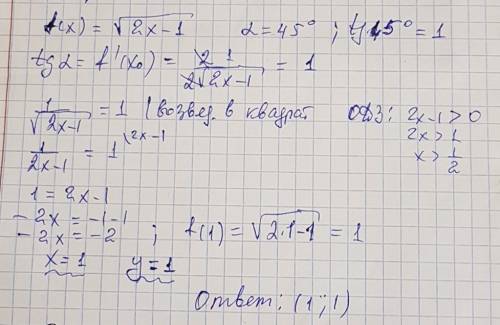 f(x) = √(2x-1)   α = 45° ; tg 45° = 1
tg α = f'(x₀) = 2·1/(2√(2x-1)) = 1
1/√(2x-1) = 1 | возвед. в квадрат   ОДЗ: 2x-1 > 0
2x > 1
1/(2x-1) = 1 \2x-1
x > 1/2
1 = 2x-1
-2x = -1-1
-2x = -2 ; f(1) = √(2·1-1) = 1
x = 1   y = 1
Ответ: (1; 1)